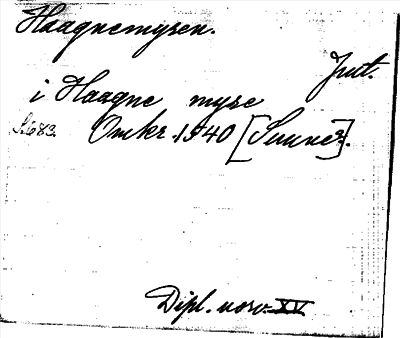 Haagnemyren.
Jnt.
i Haagne myre
S. 683. Omkr. 1540 [Sunne?].
Dipl. norv. XV